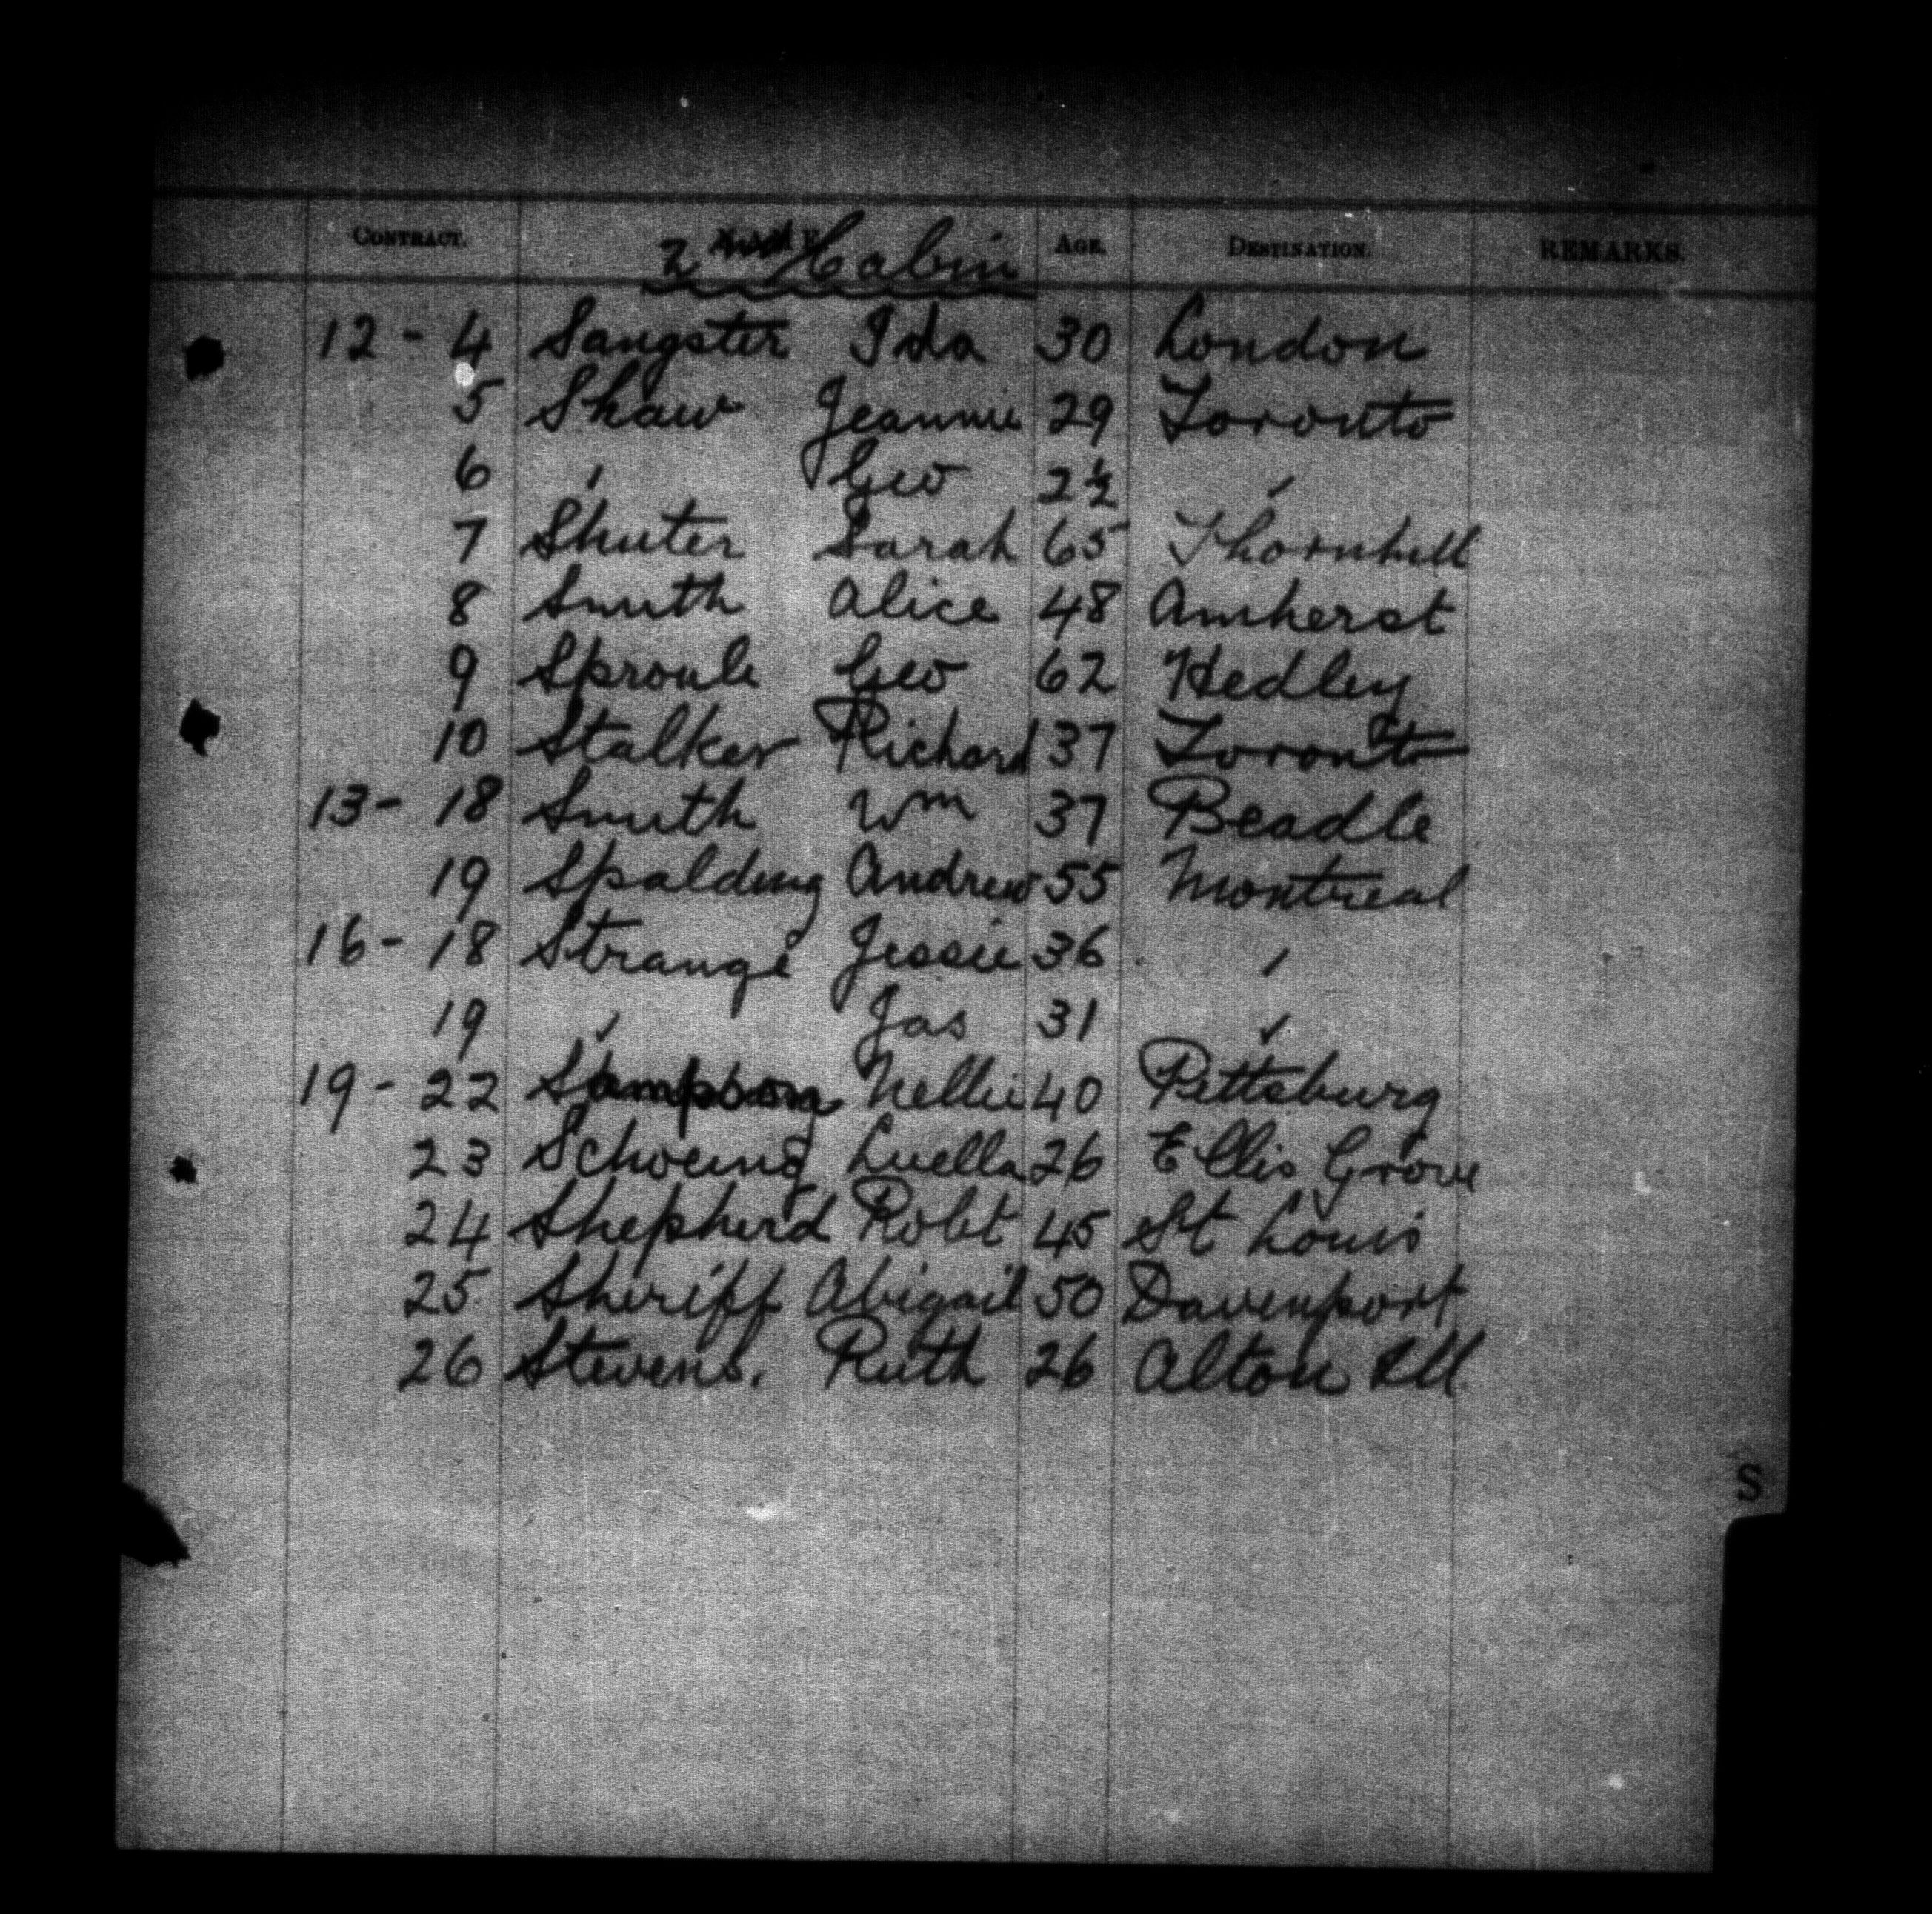 CONTRACT. NAME 2nd Cabin AGE. DESTINATION. REMARKS.
12 - 4 Sangster Ida 30 London
5 Shaw Jeannie 29 Toronto
6 " Geo 2½ "
7 Shuter Sarah 65 Thornhill
8 Smith Alice 48 Amherst
9 Sproule Geo 62 Hedley
10 Stalker Richard 37 Toronto
13 - 18 Smith Wm 37 Beadle
19 Spalding Andrew 55 Montreal
16 - 18 Strange Jessie 36 "
19 " Jas 31 "
19 - 22 Sampson Nellie 40 Pittsburg
23 Schoening Luella 26 Ellis Grove
24 Shepherd Robt 45 St Louis
25 Sheriff Abigail 50 Davenport
26 Stevens. Ruth 26 Alton Ill
S